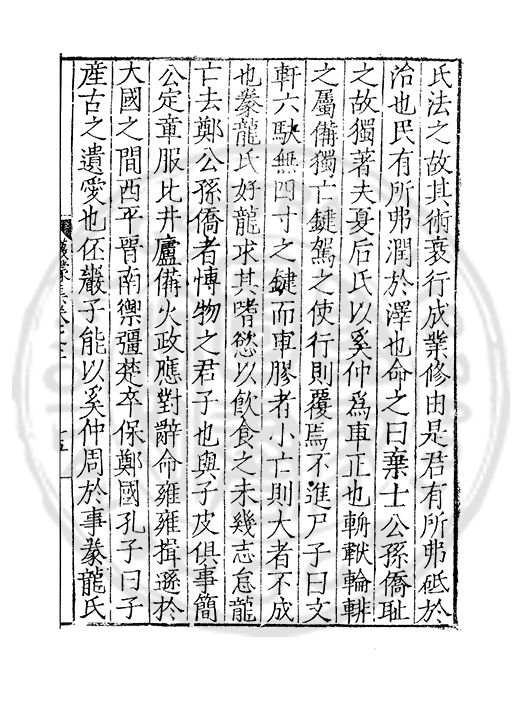 氏法之故其術衺行成業修由是君有所弗砥於
治也民有所弗潤於澤也命之曰棄士公孫僑恥
之故獨著夫夏后氏以奚仲爲車正也輪
之屬備獨亡鍵駕之使行則覆焉不進尸子曰文
軒六駃無四寸之鍵而車膠者小亡則大者不成
也豢龍氏好龍求其嗜慾以飮食之未幾志怠龍
亡去鄭公孫僑者博物之君子也與子皮俱事簡
公定章服比井廬備火政應對辭命雍雍揖遜於
大國之間西平晉南禦彊楚卒保鄭國孔子曰子
產古之遺愛也伾巖子能以奚仲周於事豢龍氏
十五